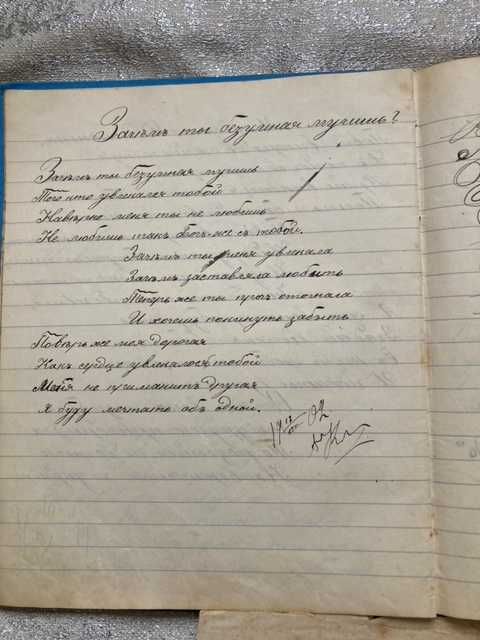 Зачѣмъ ты безумная мучишь?
Зачѣмъ ты безумная мучишь
Того что увлекался тобой
Навѣрно меня ты не любишь
Не любишь такъ богъ-же съ тобой.
Зачѣмъ ты меня увлекала
Зачѣмъ заставляла любить
Теперь же ты прочь отогнала
И хочешь покинуть забыть
Повѣрь же моя дорогая
Какъ сердце увлекалось тобой
Меня не приманитъ другая
Я буду мечтать объ одной.
02